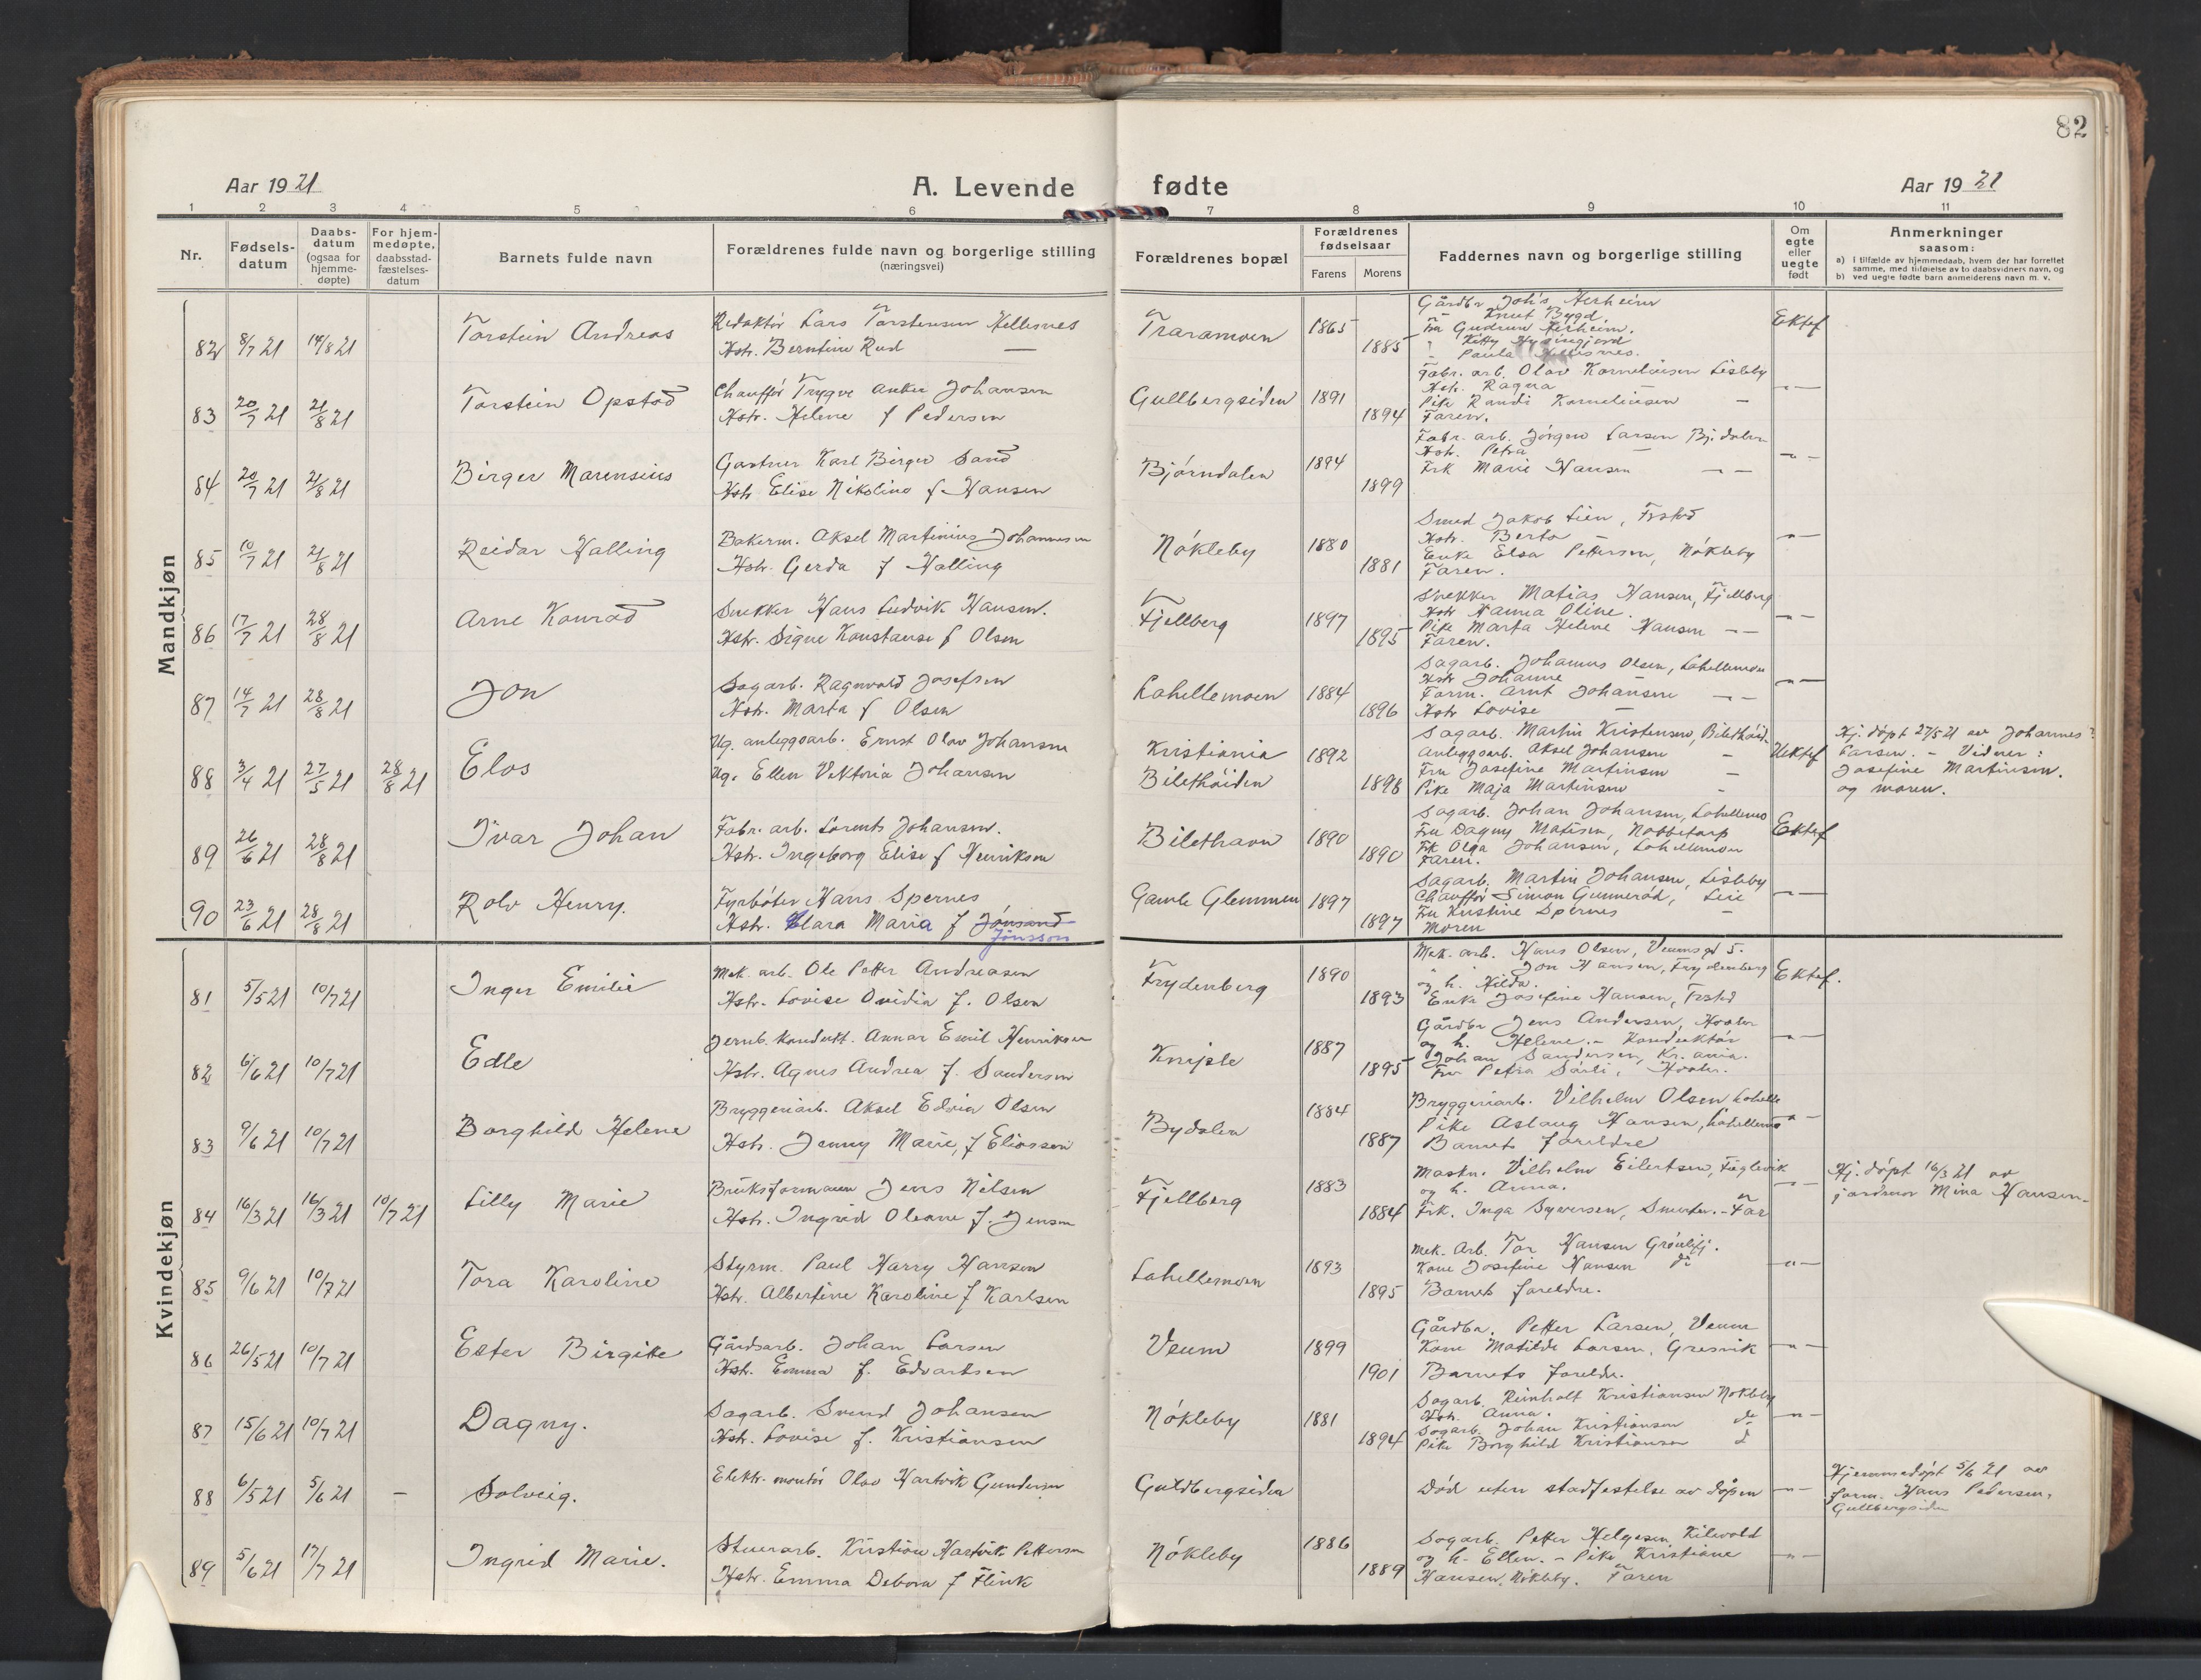 82
Aar 1921
A. Levende fødte
Aar 1921
1 2 3 4 5 6 7 8 9 10 11
Nr.
Fødsels-
datum
Daabs-
datum
(ogsaa for
hjemme-
døpte)
For hjem-
medøpte,
daabsstad-
fæstelses-
datum
Barnets fulde navn
Forældrenes fulde navn og borgerlige stilling
(næringsvei)
Forældrenes bopæl
Forældrenes
fødselsaar
Farens
Morens
Faddernes navn og borgerlige stilling
Om
egte
eller
uegte
født
Anmerkninger
saasom:
a) i tilfælde av hjemmedaab, hvem der har forrettet
samme, med tilføielse av to daabsvidners navn, og
b) ved uegte fødte barn anmelderens navn m. v.
Mandkjøn
82 8/7 21 14/8 21 Torstein Andreas
Redaktør Lars Torstensen Hellesnes
Hstr. Berntine Rud —
Traramoen 1865 1885
Gårdbr Johs Herheim
" Knut Bygd
Fru Gudrun Herheim.
" Kitty
" Paula Hellesnes.
Ektef
83 20/7 21 21/8 21 Torstein Opstad
Chauffør Trygve Anker Johansen
Hstr. Helene f Pedersen
Gullbergsiden 1891 1894
Fabr. arb. Olav Kornelinsen Lisleby
Hstr. Ragna —
Pike Randi Kornelinsen —
Faren.
— " —
84 20/7 21 21/8 21 Birger Marensius
Gartner Karl Birger Sand
Hstr Elise Nikoline f Hansen
Bjørndalen 1894 1899
Fabr. arb. Jørgen Larsen Bj.dalen
Hstr. Petra —
Frk Marie Hansen — —
— " —
85 10/7 21 21/8 21 Reidar Halling
Bakerm. Aksel Martinius Johannesen
Hstr. Gerda f Halling
Nøkleby 1880 1881
Smed Jakob Lien, Frstad
Hstr. Berta —
Enke Elsa Pettersen, Nøkleby
Faren.
— " —
86 17/7 21 28/8 21 Arne Konrad
Snekker Hans Ludvik Hansen.
Hstr. Signe Konstanse f Olsen
Fjellberg 1897 1895
Snekker Matias Hansen, Fjellberg
Hstr Hanna Oline
Pike Marta Helene Hansen — —
Faren.
— " —
87 14/7 21 28/8 21 Jon
Sagarb. Ragnvald Josefsen
Hstr. Marta f Olsen
Lahellemoen 1884 1896
Sagarb. Johannes Olsen, Lahellemoen
Hstr Johanne —
Form. Arnt Johansen — —
Hstr Lovise —
— " —
88 3/4 21 27/5 21 28/8 21 Elos
Ug. anleggsarb. Ernst Olav Johansen
Ug. Ellen Viktoria Johansen
Kristiania
Bilethøiden 1892 1898
Sagarb. Martin Kristensen, Bilethøid.
Anleggsarb. Aksel Johansen —
Fru Josefine Martinsen —
Pike Maja Martinsen —
Uektef
Hj. døpt 27/5 21 av Johannes
Larsen. – Vidner:
Josefine Martinsen.
og moren.
89 26/6 21 28/8 21 Ivar Johan
Fabr. arb. Lorents Johansen.
Hstr. Ingeborg Elise f Henriksen
Bilethavn 1890 1890
Sagarb. Johan Johansen, Lahellemo
Fru Dagny Matisen, Nabbetorp
Frk Olga Johansen, Lahellemoen
Faren.
Ektef
90 23/6 21 28/8 21 Rolv Henry.
Fyrbøter Hans Spernes
Hstr. Klara Maria f Jønsand
Jönsson
Gamle Glemmen 1897 1897
Sagarb. Martin Johansen, Lisleby
Chauffør Simon Gunnerød, Leie
Fru Kristine Spernes —
Moren
— " —
Kvindekjøn
81 5/5 21 10/7 21 Inger Emilie
Mek. arb. Ole Petter Andreasen
Hstr. Lovise Ovidia f. Olsen
Frydenberg 1890 1893
Mek. arb. Hans Olsen, Veumsgt 5.
" " Jon Hansen, Frydenberg
og h. Hilda.
Enke Josefine Hansen, Frstad
Ektef.
82 6/6 21 10/7 21 Edle
Jernb. kondukt. Annar Emil Henriksen
Hstr. Agnes Andrea f. Sandersen
Kniple 1887 1895
Gårdbr Jens Andersen, Hvaler
og h. Helene. – Konduktør
Johan Sandersen, Kr. ania.
Fru Petra Sørli, Hvaler.
— " —
83 9/6 21 10/7 21 Borghild Helene
Bryggeriarb. Aksel Edvin Olsen
Hstr. Jenny Marie, f Eliassen
Bydalen 1884 1887
Bryggeriarb. Vilhelm Olsen Lahelle
Pike Aslaug Hansen, Lahellemo
Barnets foreldre
— " —
84 16/3 21 16/3 21 10/7 21 Lilly Marie
Bruksformann Jens Nilsen
Hstr. Ingrid Oleane f. Jensen
Fjellberg 1883 1884
Maskn. Vilhelm Eilertsen, Fuglevik
og h. Anna.
Frk. Inga Syversen, Smerten. – Far
— " —
Hj. døpt 16/3 21 av
jordmor Mina Hansen
85 9/6 21 10/7 21 Tora Karoline
Styrm. Paul Harry Hansen
Hstr. Albertine Karoline f Karlsen
Lahellemoen 1893 1895
Mek. Arb. Tor Hansen Grønlifj.
Kone Josefine Hansen do
Barnets foreldre.
— " —
86 26/5 21 10/7 21 Ester Birgitte
Gårdsarb. Johan Larsen
Hstr. Emma f. Edvartsen
Veum 1899 1901
Gårdbr. Petter Larsen, Veum
Kone Matilde Larsen, Gresvik
Barnets foreldre.
— " —
87 15/6 21 10/7 21 Dagny.
Sagarb. Svend Johansen
Hstr. Lovise f. Kristiansen
Nøkleby 1881 1894
Sagarb. Reinholt Kristiansen Nøkleby
Hstr. Anna.
Sagarb. Johan Kristiansen do
Pike Borghild Kristiansen d
— " —
88 6/5 21 5/6 21 – Solveig.
Elektr. montør Olav Hartvik Gundersen
Guldbergsiden
Død uten stadfestelse av dåpen
— " —
Hjemmedøpt 5/6 21 av
form. Hans Pedersen,
Gullbergsiden
89 5/6 21 17/7 21 Ingrid Marie.
Stuerarb. Kristian Hartvik Pettersen
Hstr. Emma Debora f Flink
Nøkleby 1886 1889
Sagarb. Petter Helgesen Kilevold
og h. Ellen. – Pike Kristiane
Hansen, Nøkleby. Faren
— " —